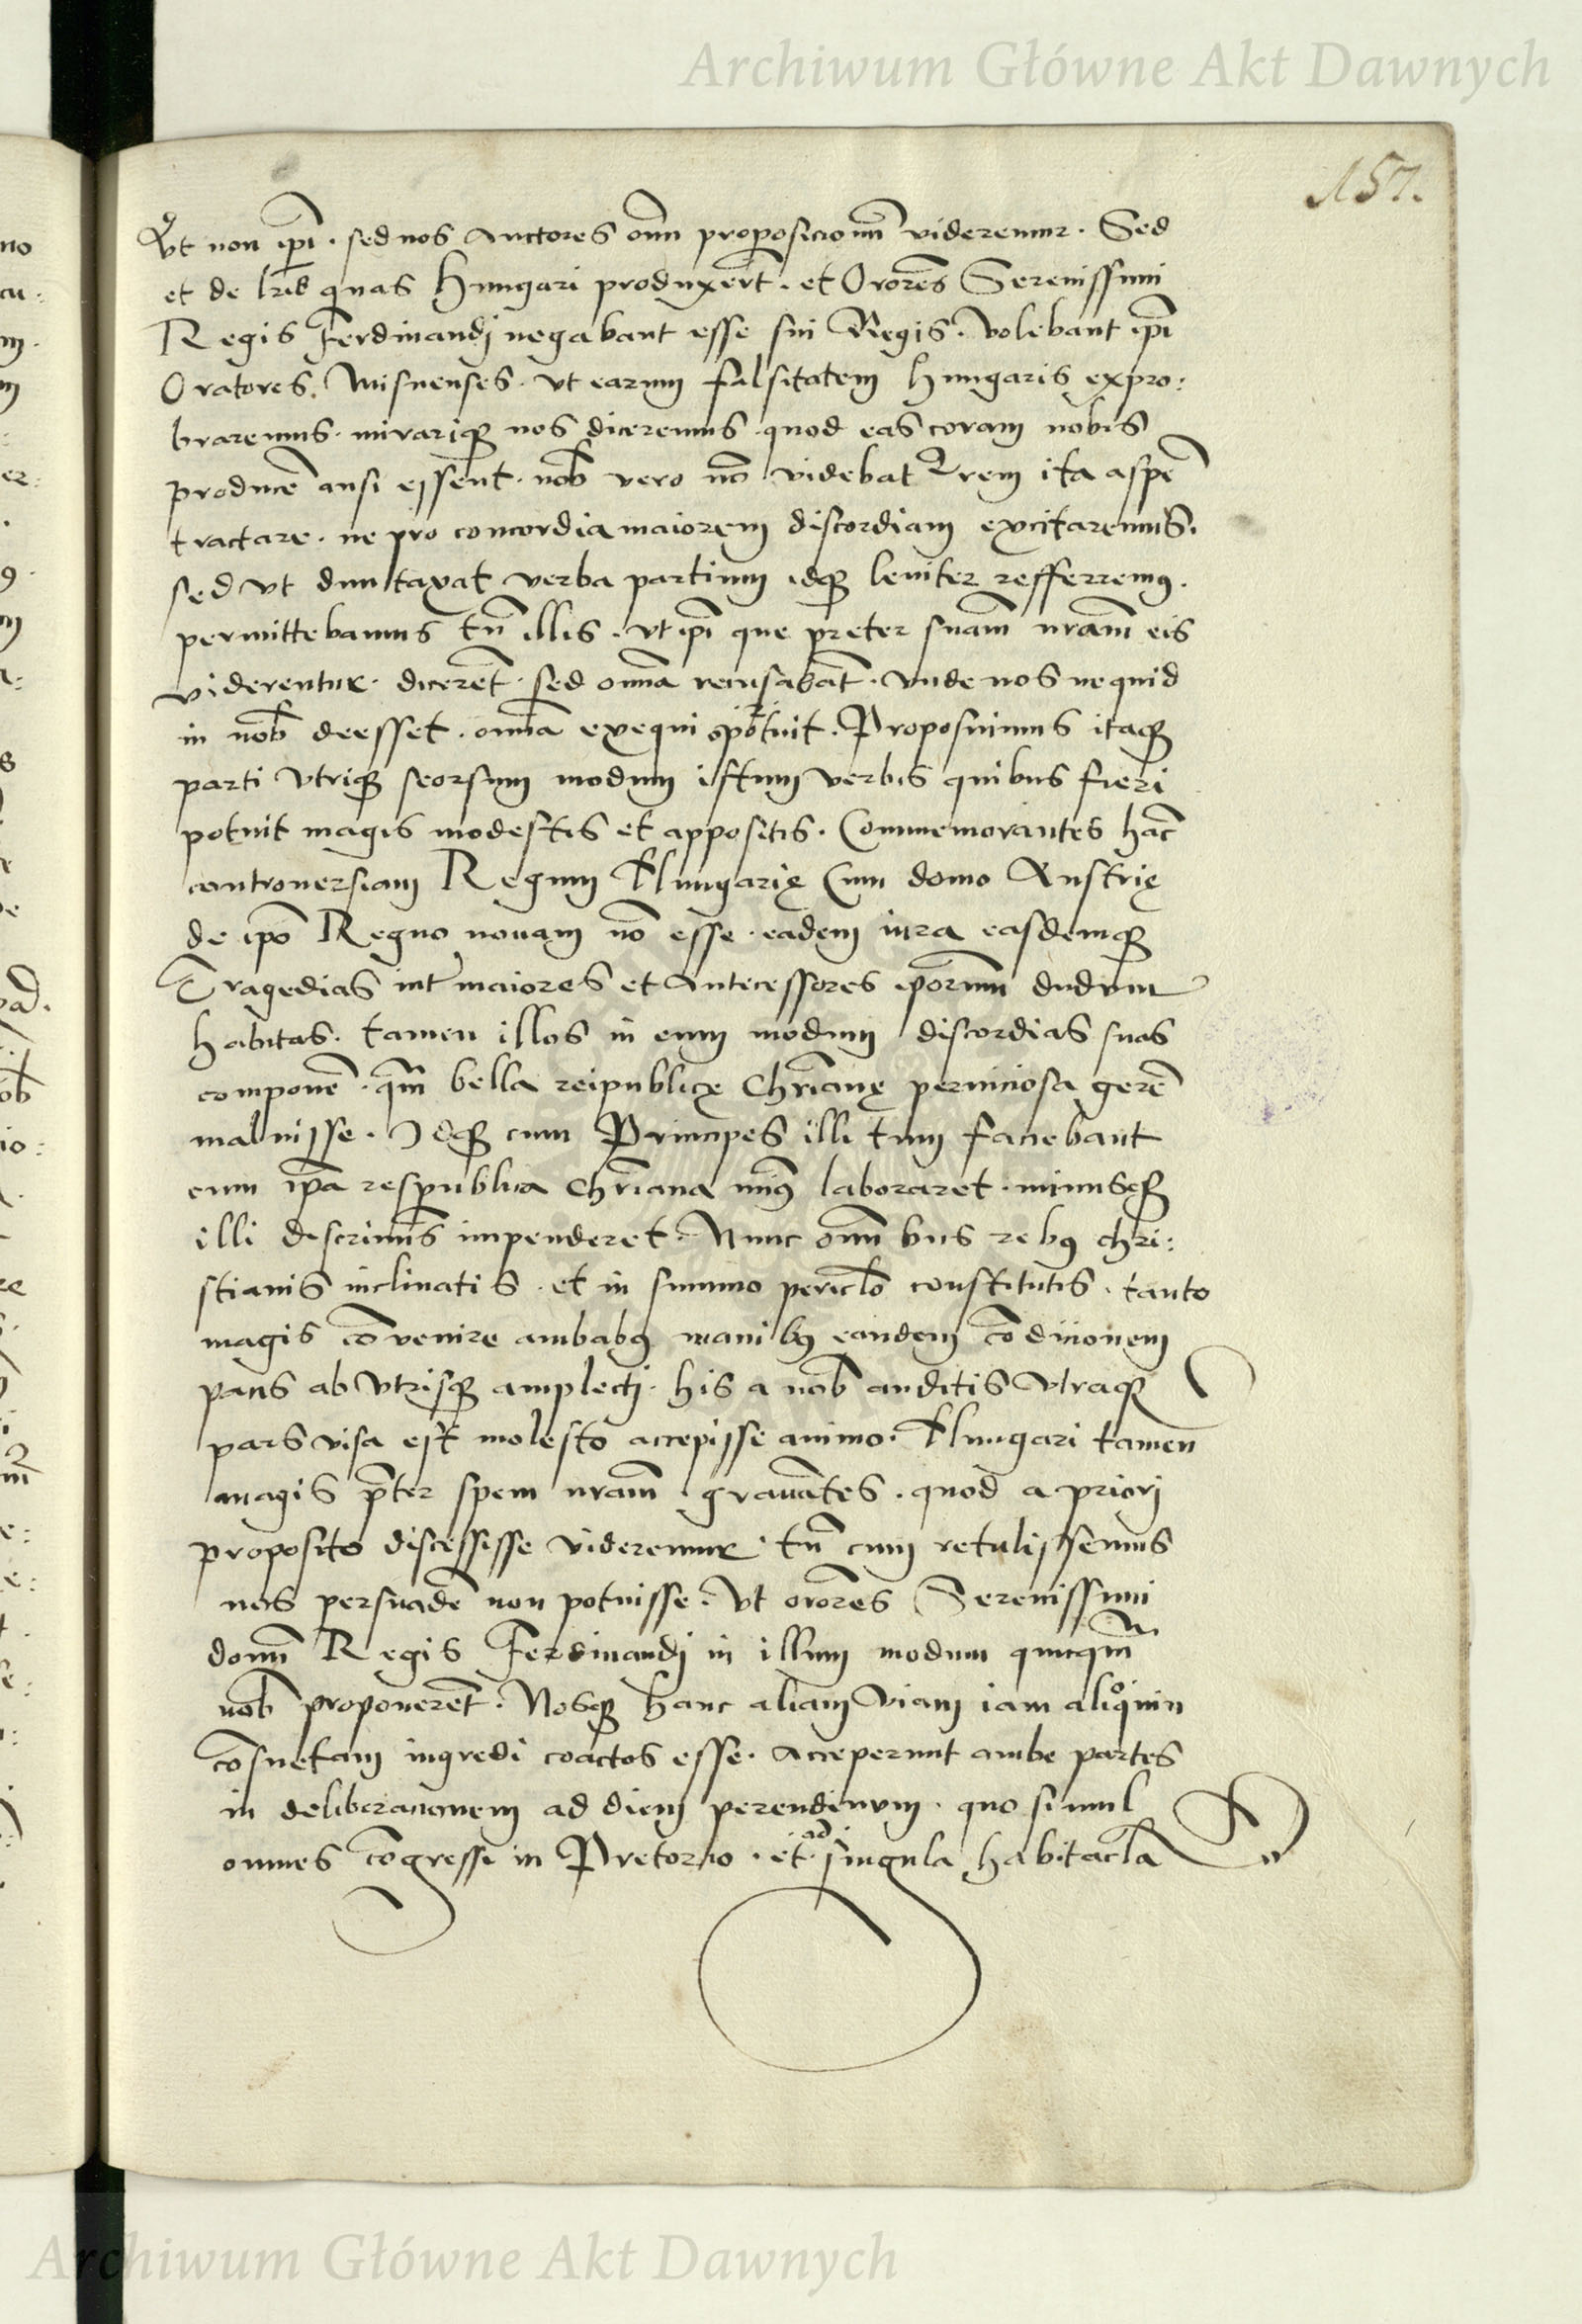 Archiwum Główne Akt Dawnych
157.
Vt non ip̄i. sed nos auctores om̄n propositionum̄ videremur. Sed
et de lr̄is quas Hungari produxer̄t. et Oror̄es Serenissimi
Regis Ferdinandj negabant esse sui Regis. Volebant ip̄i
Oratores. Misnenses. vt earum falsitatem Hungaris expro:
braremus. mirariqꝫ nos diceremus. quod eas coram nobis
producer̄ ausi essent. nob̄ vero nō videbatr̄ rem ita asper̄
tractare. ne pro concordia maiorem discordiam excitaremus.
sed vt dumtaxat verba partium idqꝫ leniter refferremꝰ.
permittebamus tn̄ illis. vt ip̄i que preter suam̄ nram̄ eis
viderentur. dicerēt. sed om̄ia recusabāt. vnde nos ne quid
in nob̄ deesset. om̄ia exequi oportuit. Proposuimus itaqꝫ
parti vtriqꝫ seorsum modum istum verbis quibus fieri
potuit magis modestis et appositis. Commemorantes hāc
controuersiam Regum Hungarię Cum domo Austrię
de ip̄o Regno nouam nō esse. eadem iura easdemqꝫ
Tragedias int̄ maiores et Antecessores ip̄orum̄ dudum
habitas. tamen illos in eum modum discordias suas
componer̄. qm̄ bella reipublicę Chr̄ianę perniciosa gerer̄
maluisse. Idqꝫ cum Principes illi tum faciebant
cum ip̄a respublica Chr̄iana minꝰ laboraret. minusqꝫ
illi discrimīs impenderet. Nunc omnibus rebꝰ chri:
stianis inclinatis. et in summo pericl̄o constitutis. tanto
magis cōvenire ambabꝰ manibꝰ eandem cōditionem
pacis ab vtrisqꝫ amplectj. his a nob̄ auditis vtraqꝫ
pars visa est molesto accepisse animo. Hungari tamen
magis p̄ter spem nram̄. grauātes. quod a priorj
proposito discessisse videremur. tn̄ cum retulissemus
nos persuader̄ non potuisse. vt oror̄es Serenissimi
domn̄ Regis Ferdinandj in illum modum quicqm̄
nob̄ proponerēt. Nosqꝫ hanc aliam viam iam alioquin
cōsuetam ingredi coactos esse. acceperunt ambe partes
in deliberationem ad diem perendinum. quo simul
omnes cōgressi in Pretorio. et ad singula habitacl̄a
Archiwum Główne Akt Dawnych